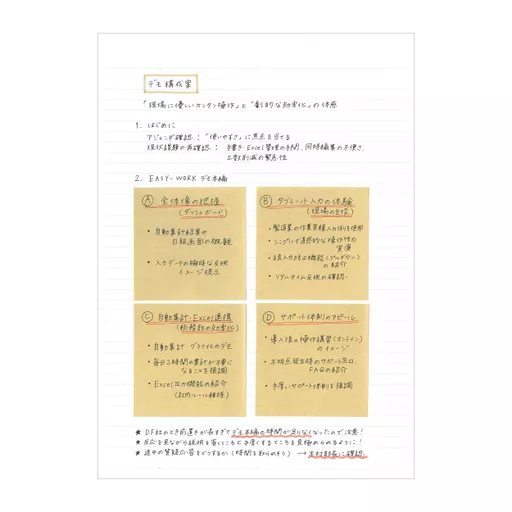 デモ構成案
「現場に優しいカンタン操作」と「劇的な効率化」の体感
1. はじめに
アジェンダ確認：「使いやすさ」に焦点を当てる
現状課題の再確認：手書き・Excel管理の手間、同時編集の不便さ、
工数削減の緊急性
2. EASY-WORK デモ本編
Ⓐ 全体像の把握
(ダッシュボード)
・自動集計結果や
日報画面の概観
・入力データの瞬時な反映
イメージ提示
Ⓑ タブレット入力の体験
(現場の主役)
・製造業の作業実績入力例を使用
・シンプルで直感的な操作性の
実演
・誤入力防止機能(プルダウン)
の紹介
・リアルタイム反映の確認
Ⓒ 自動集計・Excel連携
(総務部の効率化)
・自動集計・グラフ化のデモ
・毎日2時間の集計が不要に
なることを強調
・Excel出力機能の紹介
(社内ルール維持)
Ⓓ サポート体制のアピール
・導入後の操作講習(オンライン)
のイメージ
・不明点発生時のサポート窓口、
FAQの紹介
・手厚いサポート体制を強調
★ DF社のとき前置きが長すぎてデモ本編の時間が足りなくなったので注意！
★ 反応を見ながら説明を省くところと手厚くするところを見極められるように！
★ 途中の質疑応答をどうするか(時間を取られのそう) → 木村部長に確認